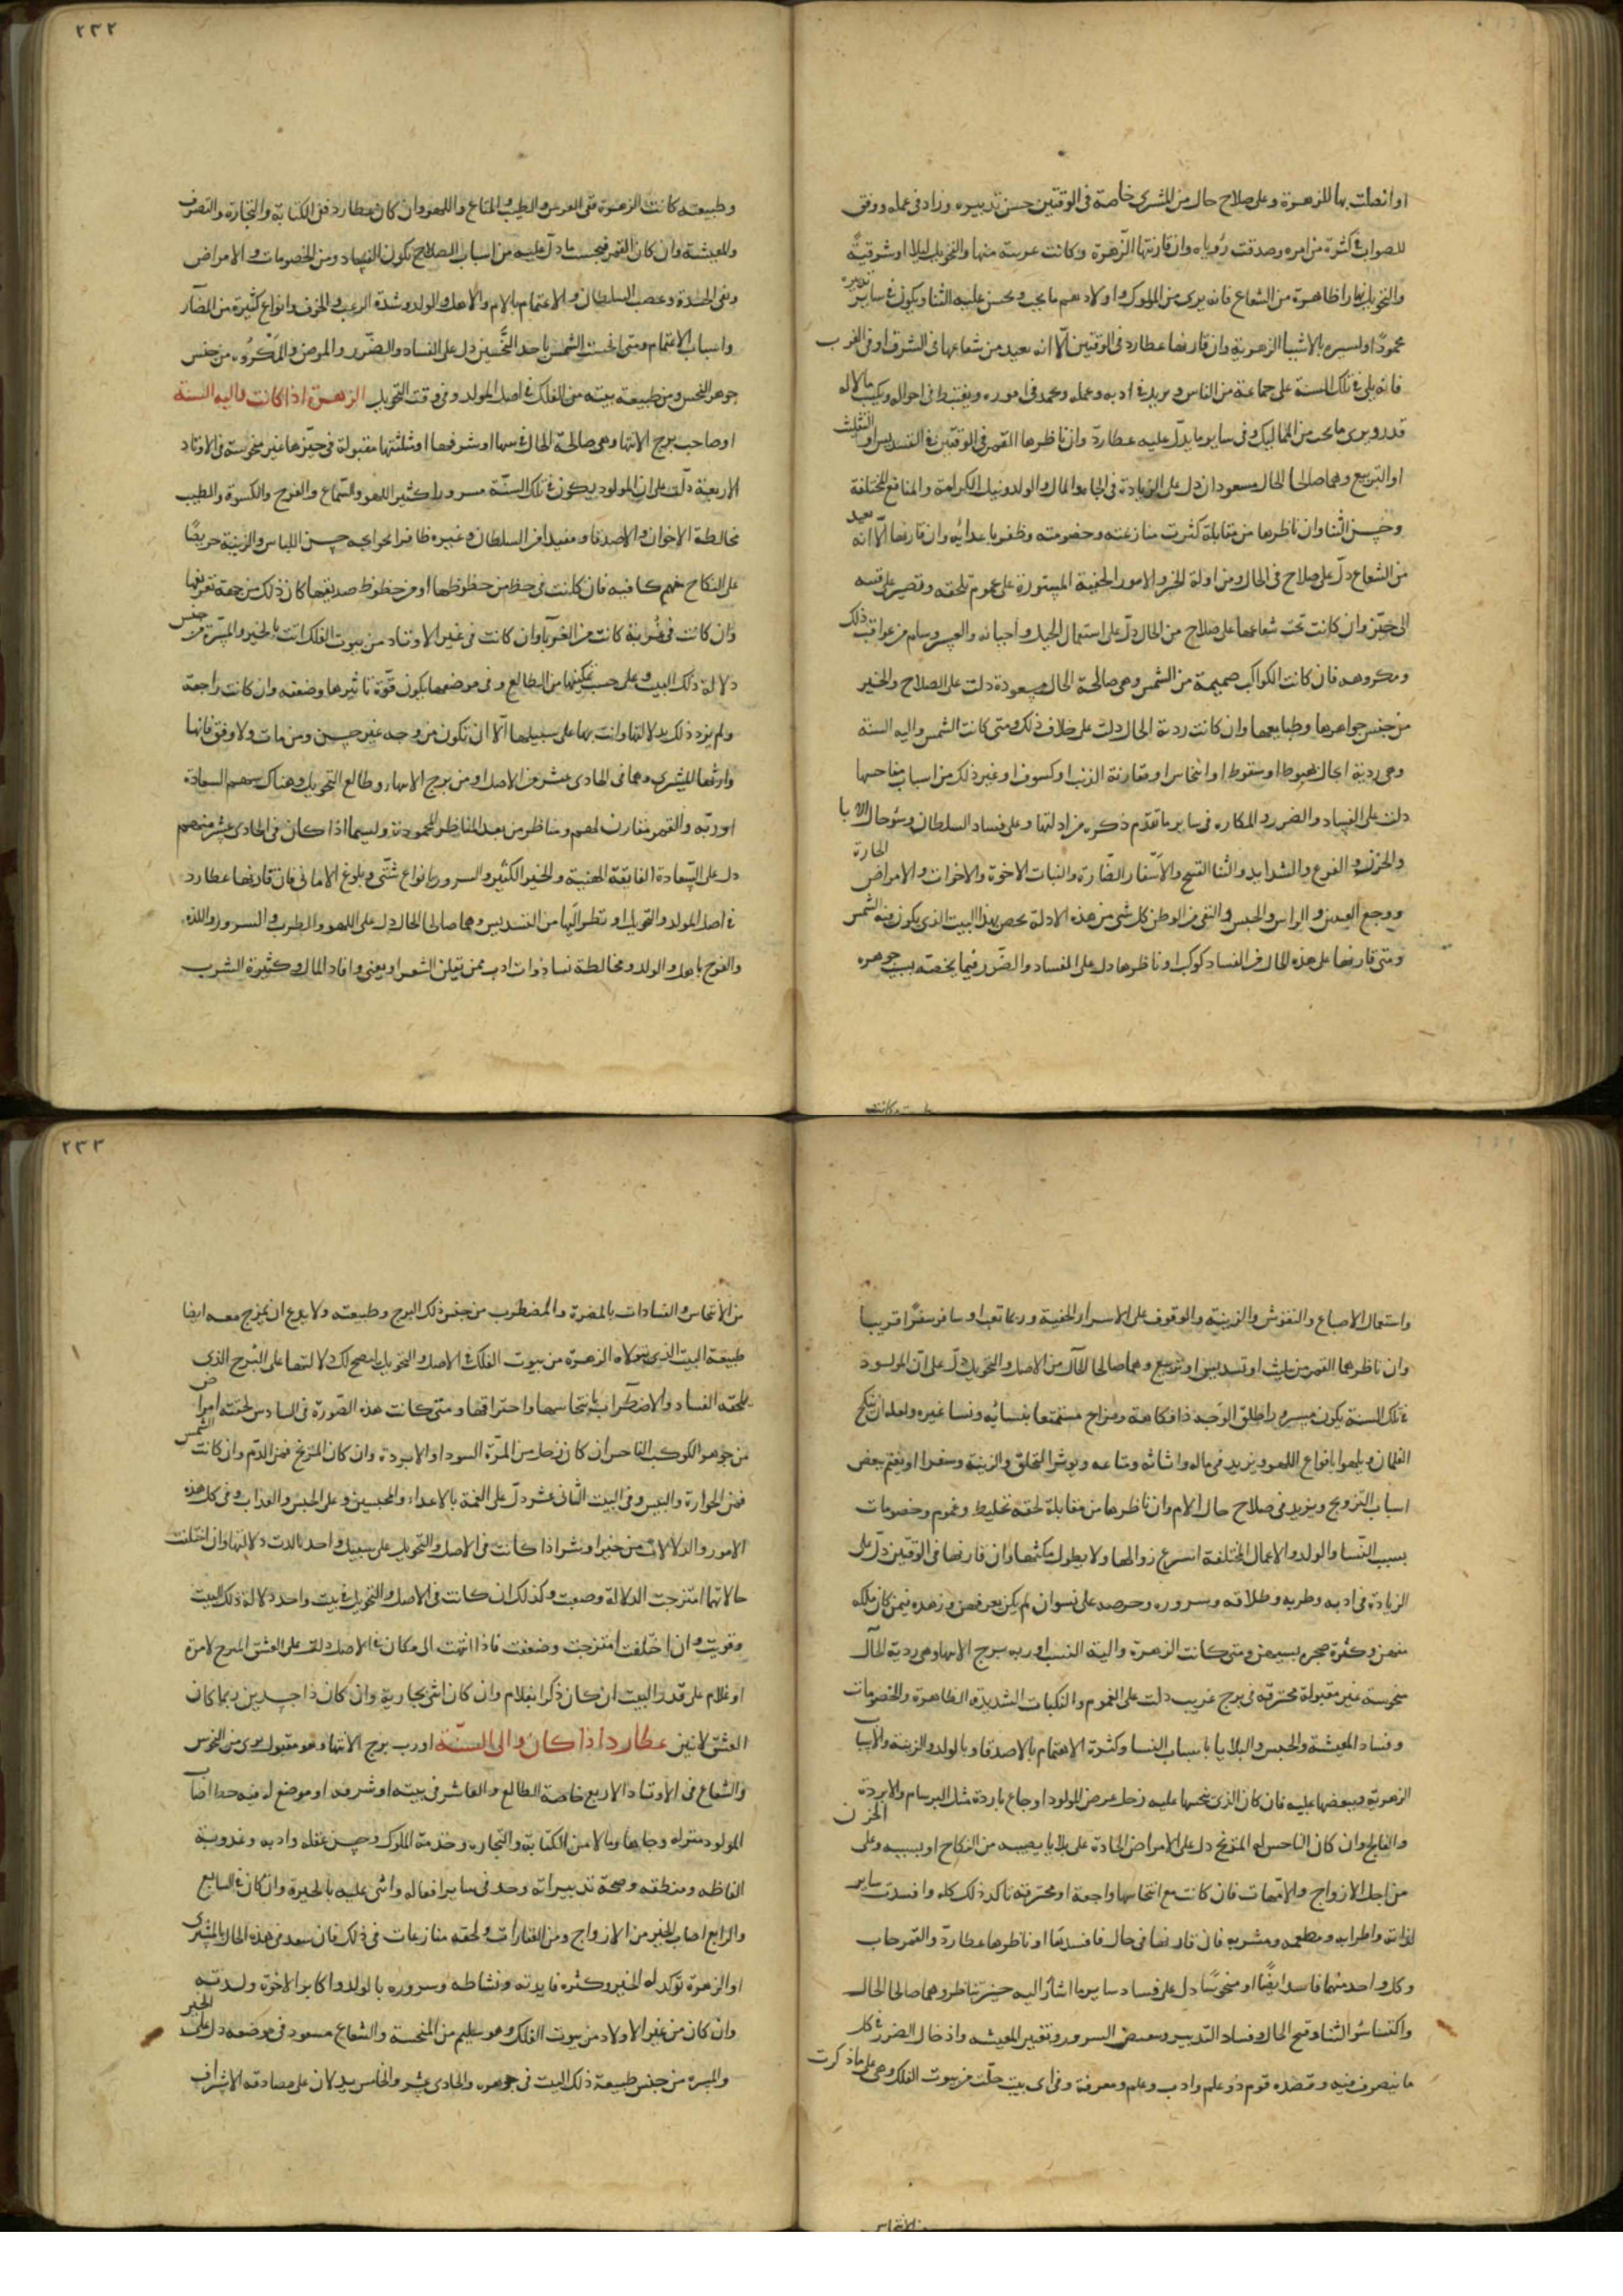 او اتصلت بها للزهرة وعلى صلاح حال من المشترى خاصة فى الوقتين حسن تدبيره وزاد فى عمله ووفق
للصواب فى كثرة من امره وصدقت رؤياه وان قارنتها الزهرة وكانت عربية منها والتحويل ليلا او شرقية
والتحويل نهارا ظاهرة من الشعاع فانه يرى من الملوك واولادهم ما يحب ويحسن عليه الثنا ويكون فى ساير تدبيره
محمودا والسيره بالاشيا الزهرية وان قارنها عطارد فى الوقتين الا انه بعيد من شعاعها فى الشرق او فى الغرب
فانه يلى فى تلك السنة على جماعة من الناس ويزيد فى ادبه وعمله ويحمد فى اموره ويغتبط فى احواله ويكسب مالا له
قدر ويرى ما يحب من المماليك وفى ساير ما يدل عليه عطارد وان ناظرها القمر فى الوقتين فى التسديس او التثليث
او التربيع وهما صالحا الحال مسعودان دل على الزيادة فى الجاه والمال والولد ونيل الكرامة والمنافع المختلفة
وحسن الثنا وان ناظرها من مقابلة كثرت منازعته وخصومته وظفر باعدائه وان قارنها الا انه بعيد
من الشعاع دل على صلاح فى الحال ومزاولة الخير والامور الخفية المستورة على عموم تلحقه وتقصير على نفسه
الى حين وان كانت تحت شعاعها على صلاح من الحال دل على استعمال الحيل واحيانه والعسر وسلم من عواقب ذلك
ومكروهه فان كانت الكواكب صميمة من الشمس وهى صالحة الحال مسعودة دلت على الصلاح والخير
من جنس جواهرها وطبايعها وان كانت ردية الحال دلت على خلاف ذلك ومتى كانت الشمس واليه السنة
وهى ردية الحال بهبوط او سقوط او انتحاس او مقارنة الذنب او كسوف او غير ذلك من اسباب مناحسها
دلت على الفساد والضرر والمكاره فى ساير ما تقدم ذكره من ادلتها وعلى فساد السلطان وسؤ حال الابا
والحزن والفزع والشدايد والثنا القبيح والاسفار الضارة والبنات الاخوة والاخوات والامراض الحارة
ووجع العينين والراس والحبس والنفى من الوطن كل شى من هذه الادلة يخص بهذا البيت الذى يكون فيه الشمس
ومتى قارنها على هذه الحال فى الفساد كوكب او ناظرها دل على الفساد والضرر فيما يخصه بسبب جوهره
وطبيعته كانت
٢٣٢
وطبيعته كانت الزهرة ففى العرس والطيب والمتاع واللهو وان كان عطارد ففى الكتابة والتجارة والتصرف
والمعيشة وان كان القمر فبحسب ما دل عليه من اسباب الصلاح تكون الفساد ومن الخصومات والامراض
ونفى الحدة وغضب السلطان والاغتمام بالام والاهل والولد وشدة الرعب والخوف وانواع كثيرة من المضار
واسباب الاغتمام ومتى انحست الشمس باحد النحسين دل على الفساد والضرر والمرض والمكروه من جنس
جوهر النحس ومن طبيعة بيته من الفلك فى اصل المولد وفى وقت التحويل الزهرة اذا كانت واليه السنة
او صاحب برج الانتها وهى صالحة الحال فى بيتها او شرفها او مثلثتها مقبولة فى حيزها غير منحوسة فى الاوتاد
الاربعة دلت على ان المولود يكون فى تلك السنة مسرورا كثير اللهو والسماع والفرح والكسوة والطيب
مخالطة الاخوان والاصدقا ومفيدا من السلطان وغيره ظافرا بحوايجه حسن اللباس والزينة حريصا
على النكاح منهمكا فيه فان كانت فى حظ من حظوظها او من حظوظ صديقها كان ذلك من جهة تعرفها
وان كانت فى غربة كانت من الغربا وان كانت فى غير الاوتاد من بيوت الفلك اتت بالخير والمسرة من جنس
دلالة ذلك البيت وعلى حسب تمكينها من الطالع وفى موضعها يكون قوة تاثيرها وضعفه وان كانت راجعة
ولم يزد ذلك بدلالتها واتت بها على سبيلها الا ان تكون من وجه غير حسن ومن مات ولا وفق فانها
وارثها للمشترى وهما فى الحادى عشر من الاصل او من برج الانتهاء وطالع التحويل وهناك سهم السعادة
او ربه والقمر مقارن لهم ومناظر من بعد المناظر المحمودة ولاسيما اذا كان فى الحادى عشر منهم سهم
دل على السعادة الفايقة العجيبة والخير الكثير والسرور بانواع شتى وبلوغ الامانى فان قارنها عطارد
فى اصل المولد والتحويل او نظر اليها من التسديس وهما صالحا الحال دل على اللهو والطرب والسرور واللذة
والفرح باهل والولد ومخالطة نسا ذوات ادب ممن يقلن الشعر او يغنى وافاد المال وكثيرة الشرب
واستعمال الاصباغ والنقوش والزينة والوقوف على الاسرار الخفية وربما تعب او سافر سفرا قريبا
وان ناظرهما القمر من تثليث او تسديس او تربيع وهما صالحا الحال من الاصل والتحويل دل على ان المولود
فى تلك السنة يكون مسرورا طلق الوجه ذا فكاهة ومزاح مستمتعا بنسائه ونسا غيره ولعله ان ينكح
الغلمان ويلهو بانواع اللهو ويزيد فى ماله واثاثه ومتاعه ويوثر التخلق والزينة وسفر او يغتم ببعض
اسباب التزويج ويزيد فى صلاح حال الام وان ناظرها من مقابلة لحقه تخليط وغموم وخصومات
بسبب النسا والولد والاعمال المختلفة اسرع زوالها ولا يطول مكثها وان قارنها فى الوقتين دل على
الزيادة فى ادبه وطربه وطلاقه وسروره وحرصه على نسوان لم يكن يعرفهن وزهده فيمن كان يملكه
منهن وكثرة ضجره بسببهن ومتى كانت الزهرة والية السنة او ربه برج الانتها وهى ردية الحال
منحوسة غير مقبولة محترقة فى برج غريب دلت على الغموم والنكبات الشديدة الظاهرة والخصومات
وفساد المعيشة والحبس والبلايا باسباب النسا وكثرة الاهتمام بالاصدقا وبالولد والزينة والاسباب
الزهرية وبعضها عليه فان كان الذى ينحسها عليه زحل مرض المولود اوجاع باردة مثل البرسام والابردة
والفالج وان كان الناحس له المريخ دل على الامراض الحادة على بلايا يصيبه من النكاح او بسببه وعلى الحزن
من اجل الازواج والامهات فان كانت مع انتحاسها راجعة او محترقة تاكد ذلك كله وافسدت ساير
لذاته واطرابه ومطعمه ومشربه فان قارنها فى حال فاسد بها او ناظرها عطارد والقمر حاب
وكل واحد منهما فاسد ايضا او منحوسا دل على فساد ساير ما اشار اليه حين تناظر وهما صالحا الحال
واكتسا سؤ الثنا وقبح الحال وفساد التدبير وبعض السرور وتقتير المعيشه وادخال الضرر فى كل
ما يتصرف فيه وقصده قوم ذو علم وادب وعلم ومعرفة وفى اى بيت حلت من بيوت الفلك وهى على ما ذكرت
من الانتحاس
٢٣٣
من الانتحاس والفسادات بالمضرة والمضطرب من جنس ذلك البرج وطبيعته ولا يدع ان يمزج معه ايضا
طبيعة البيت الذى تتولاه الزهرة من بيوت الفلك فى الاصل والتحويل ليصح لك دلالتها على البرج الذى
يلحقه الفساد والاضطراب بانتحاسها واحتراقها ومتى كانت هذه الصورة فى السادس لحقته امراض
من جوهر الكوكب الناحس ان كان زحل من المرة السودا والابردة وان كان المريخ فمن الدم وان كانت الشمس
فمن الحرارة واليبس وفى البيت الثانى عشر دل على الغمة بالاعداء والمحبسين وعلى الحبس والعذاب وفى كل هذه
الامور والدلالات من خير او شر اذا كانت فى الاصل والتحويل على سبيل واحد تاكدت دلالتها وان اختلفت
حالاتهما امتزجت الدلالة وصعبت وكذلك ان كانت فى الاصل والتحويل فى بيت واحد دلالة ذلك البيت
وقويت وان اختلفت امتزجت وضعفت فاذا انتهت الى مكان فى الاصل دلت على العشق المبرح لامرة
او غلام على قدر البيت ان كان ذكرا فبغلام وان كان انثى بجارية وان كان ذا جسدين ربما كان
العشق لاثنين عطارد اذا كان والى السنة او رب برج الانتها وهو مقبول برى من النحوس
والشعاع فى الاوتاد الاربع خاصة الطالع والعاشر فى بيته او شرفه او موضع له فيه حظ اصاب
المولود منزلة وجاها ومالا من الكتابة والتجارة وخدمة الملوك وحسن عقله وادبه وعذوبة
الفاظه ومنطقه وصحة تدبيراته وحمد فى ساير افعاله واثنى عليه بالخيرة وان كان فى السابع
والرابع اصاب الخير من الازواج ومن العقارات ولحقه منازعات فى ذلك فان سعد فى هذه الحال بالمشترى
او الزهرة توكد له الخير وكثره فايدته ونشاطه وسروره بالولد واكابر الاخوة ولدته
وان كان من غير الاولاد من بيوت الفلك وهو سليم من المنحسة والشعاع مسعود فى موضعه دل على الخير
والمسرة من جنس طبيعة ذلك البيت فى جوهره والحادى عشر والخامس يدلان على مصادقة الاشراف